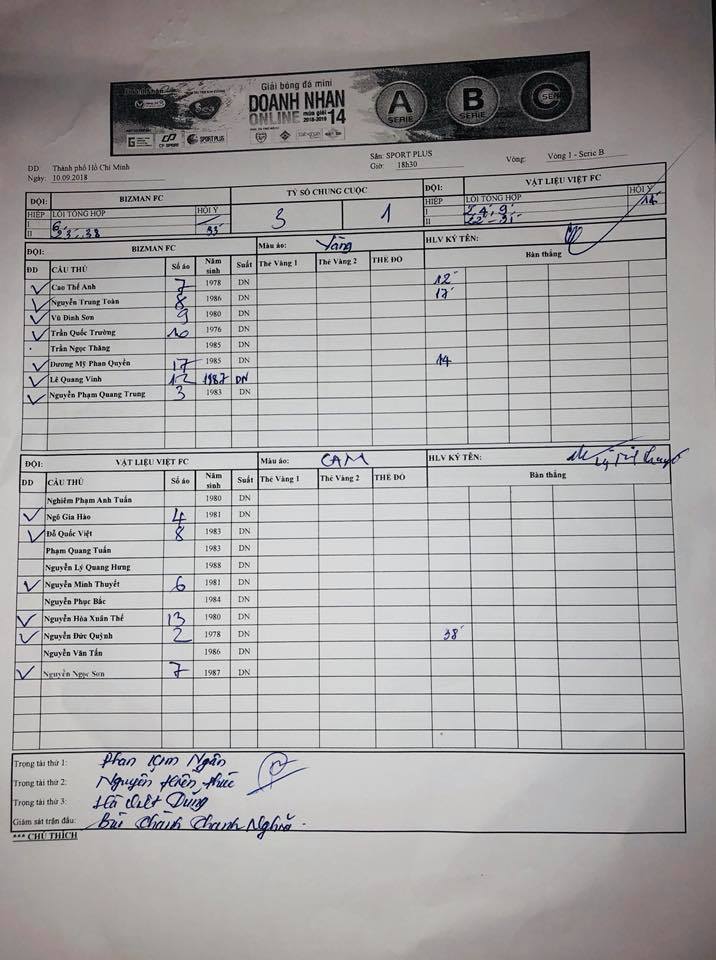 Giải bóng đá mini
DOANH NHÂN
ONLINE mùa giải 2018-2019 14
A SERIE B SERIE C SERIE
SPORT PLUS
DD Thành phố Hồ Chí Minh Sân: SPORT PLUS Vòng: Vòng 1 - Serie B
Ngày: 10.09.2018 Giờ: 18h30
ĐỘI: BIZMAN FC TỶ SỐ CHUNG CUỘC ĐỘI: VẬT LIỆU VIỆT FC
HIỆP LỖI TỔNG HỢP HỘI Ý 3 1 HIỆP LỖI TỔNG HỢP HỘI Ý
I 6' I
II 33' II
ĐỘI: BIZMAN FC Màu áo: Vàng HLV KÝ TÊN:
DD CẦU THỦ Số áo Năm sinh Suất Thẻ Vàng 1 Thẻ Vàng 2 THẺ ĐỎ Bàn thắng
Cao Thế Anh 7 1978 DN 12'
Nguyễn Trung Toàn 8 1986 DN 17'
Vũ Đình Sơn 9 1980 DN
Trần Quốc Trường 10 1976 DN
Trần Ngọc Thăng 1985 DN
Dương Mỹ Phan Quyền 17 1985 DN 14
Lê Quang Vinh 12 1987 DN
Nguyễn Phạm Quang Trung 3 1983 DN
ĐỘI: VẬT LIỆU VIỆT FC Màu áo: CAM HLV KÝ TÊN:
DD CẦU THỦ Số áo Năm sinh Suất Thẻ Vàng 1 Thẻ Vàng 2 THẺ ĐỎ Bàn thắng
Nghiêm Phạm Anh Tuấn 1980 DN
Ngô Gia Hào 4 1981 DN
Đỗ Quốc Việt 8 1983 DN
Phạm Quang Tuấn 1983 DN
Nguyễn Lý Quang Hưng 1988 DN
Nguyễn Minh Thuyết 6 1981 DN
Nguyễn Phục Bắc 1984 DN
Nguyễn Hòa Xuân Thế 13 1980 DN
Nguyễn Đức Quỳnh 2 1978 DN 38'
Nguyễn Văn Tấn 1986 DN
Nguyễn Ngọc Sơn 7 1987 DN
Trọng tài thứ 1: Phan Kim Ngân
Trọng tài thứ 2: Nguyễn Hiền
Trọng tài thứ 3: Hà Việt Dũng
Giám sát trận đấu: Bùi Chánh Nghĩa
*** CHÚ THÍCH